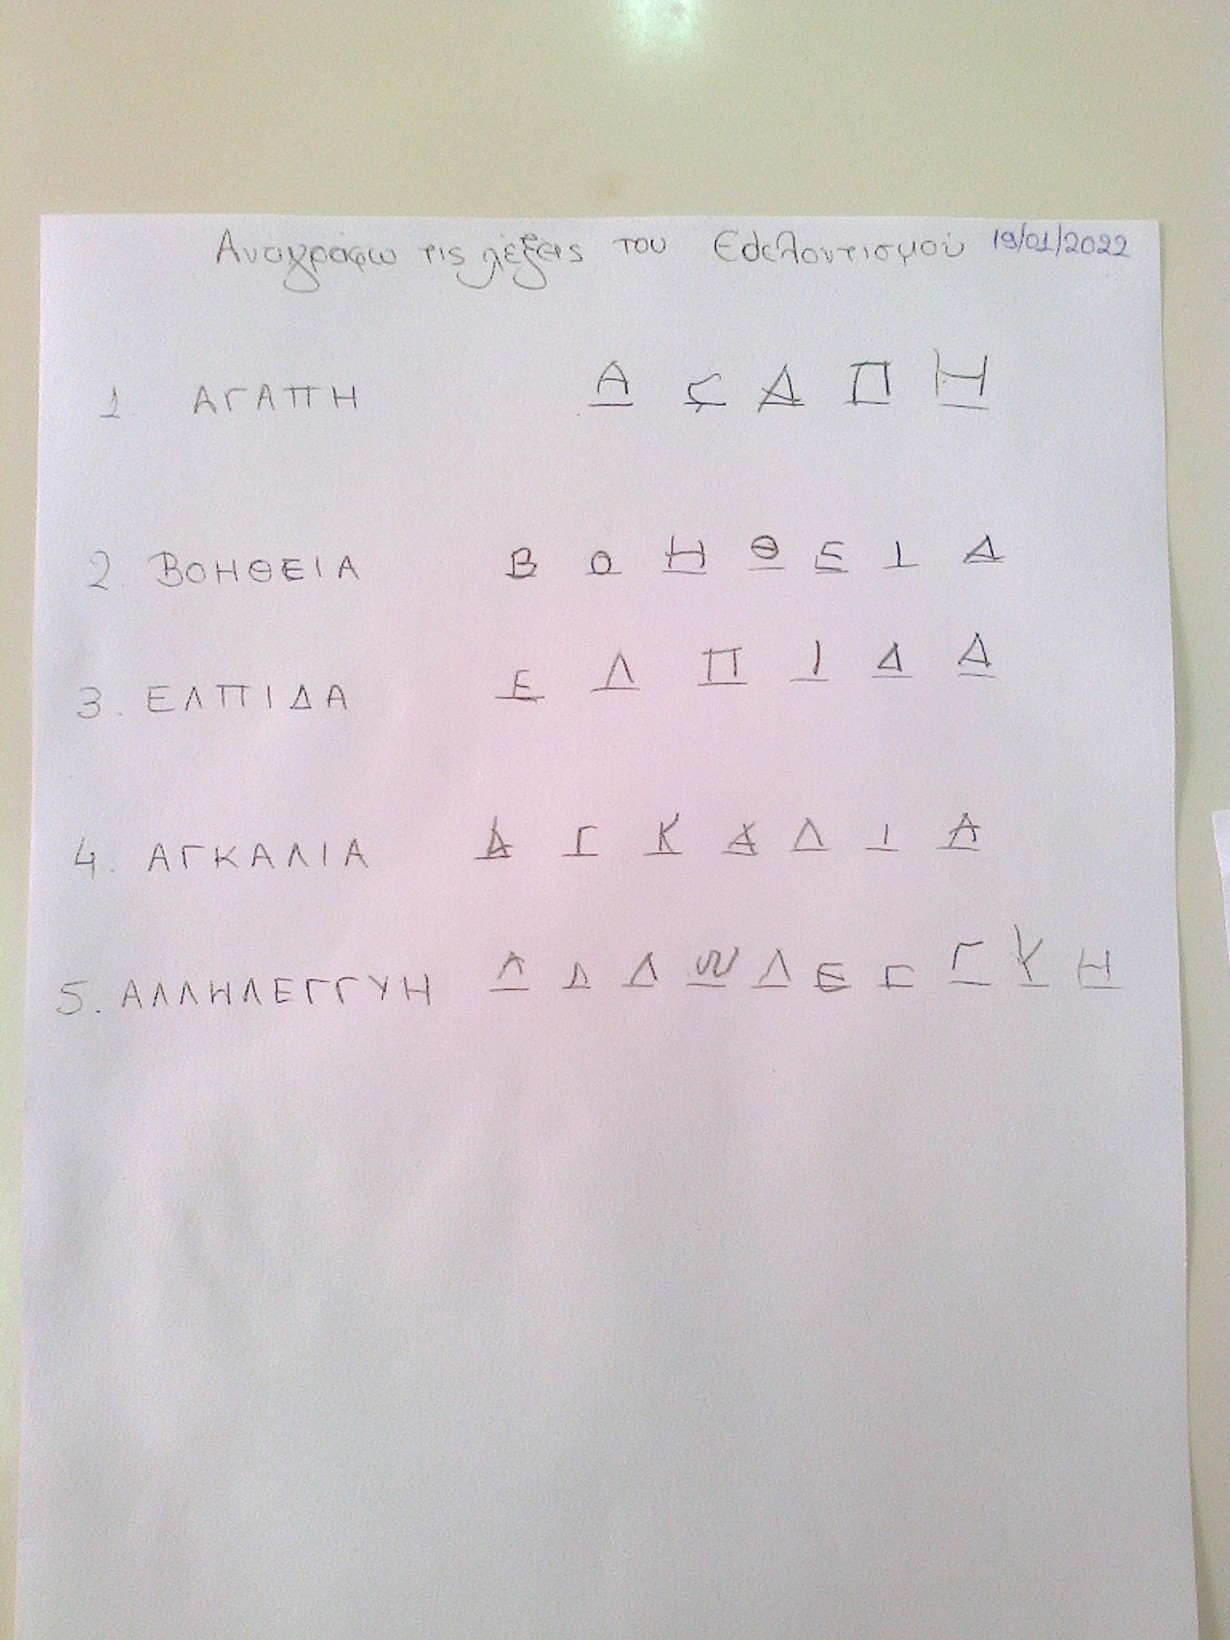 Αναγράφω τις λέξεις του Εθελοντισμού 19/01/2022
1 ΑΓΑΠΗ Α Γ Α Π Η
2. ΒΟΗΘΕΙΑ Β Ο Η Θ Ε Ι Α
3. ΕΛΠΙΔΑ Ε Λ Π Ι Δ Α
4. ΑΓΚΑΛΙΑ Α Γ Κ Α Λ Ι Α
5. ΑΛΛΗΛΕΓΓΥΗ Α Λ Λ Λ Ε Γ Γ Υ Η